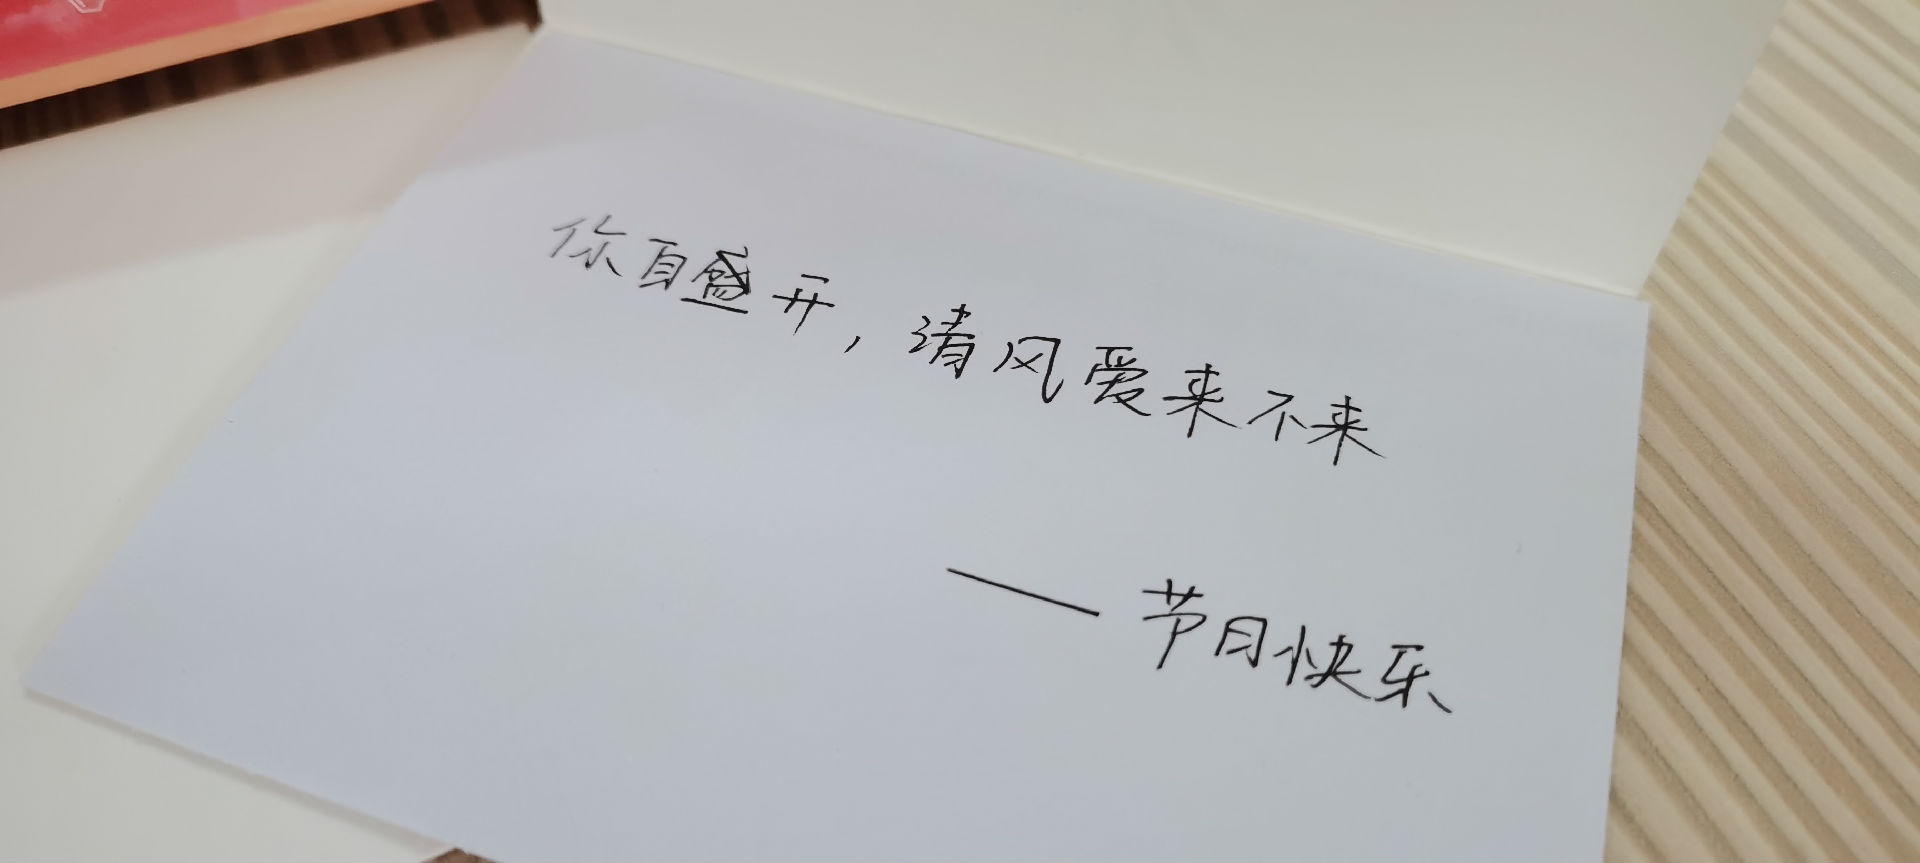 你自盛开，清风爱来不来
——节日快乐